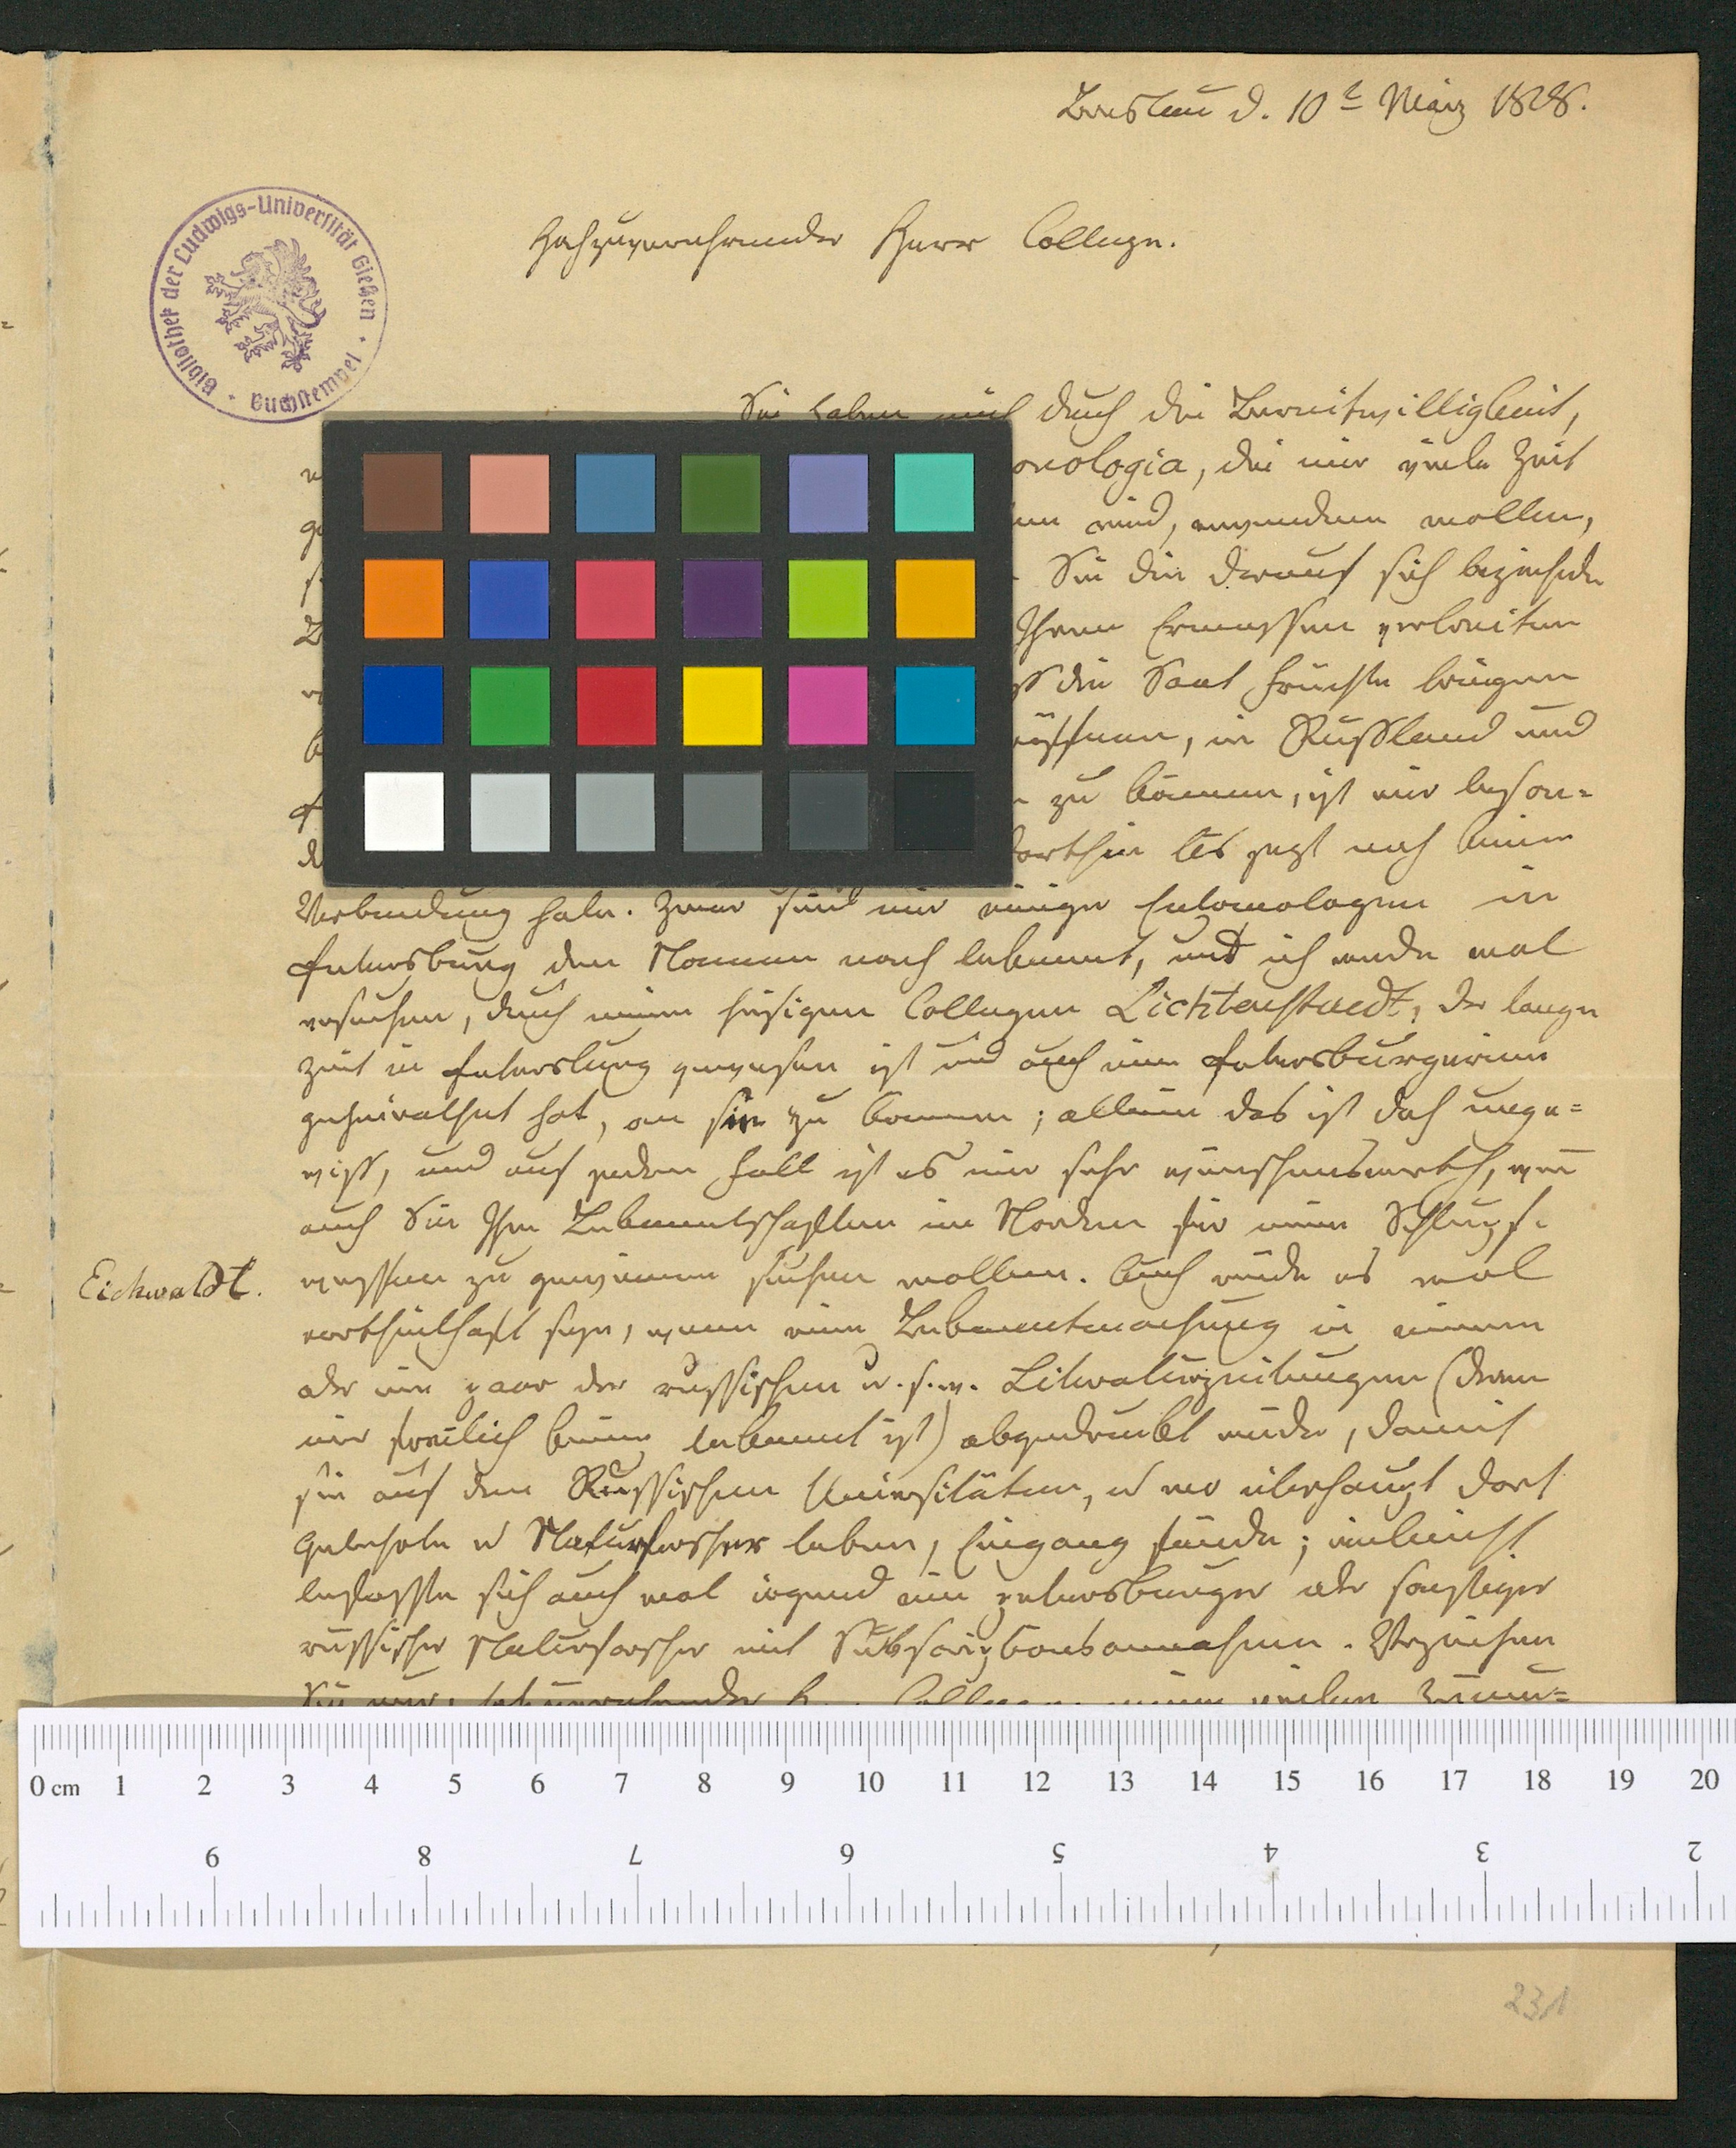 Breslau d. 10t März 1828.
Bibliothek der Ludwigs-Universität Gießen · Buchstempel ·
Hochzuverehrender Herr College.
Sie haben mich durch die Bereitwilligkeit,
onologia, die mir viele Zeit
wollen,
Sie die darauf sich beziehende
Ihrem Ermessen verbreiten
die Saat Früchte bringen
in Rußland und
zu können, ist mir beson=
dorthin bis jetzt noch keine
Verbindung habe. Zwar sind mir einige Entomologen in
Petersburg dem Namen nach bekannt, und ich werde mal
versuchen, durch meinen hiesigen Collegen Lichtenstaedt, der lange
Zeit in Petersburg gewesen ist und auch eine Petersburgerinn
geheirathet hat, an sie zu kommen; allein das ist doch unge=
wiß, und auf jeden Fall ist es mir sehr wünschenswerth, wenn
auch Sie Ihre Bekanntschaften im Norden für meine Schlupf=
Eichwaldt.
wespen zu gewinnen suchen wollten. Auch würde es wol
vortheilhaft seyn, wenn eine Bekanntmachung in einem
oder ein paar der russischen u.s.w. Literaturzeitungen (deren
mir freilich keine bekannt ist) abgedruckt würde, damit
sie auf den Russischen Universitäten, u wo überhaupt dort
Gelehrte u Naturforscher leben, Eingang fände; vielleicht
befaßte sich auch wol irgend ein petersburger oder sonstiger
russischer Naturforscher mit Subscriptionsannahme. Verzeihen
Sie nur, College, meine vielen Zumu=
0 cm 1 2 3 4 5 6 7 8 9 10 11 12 13 14 15 16 17 18 19 20
9 8 7 6 5 4 3 2
231